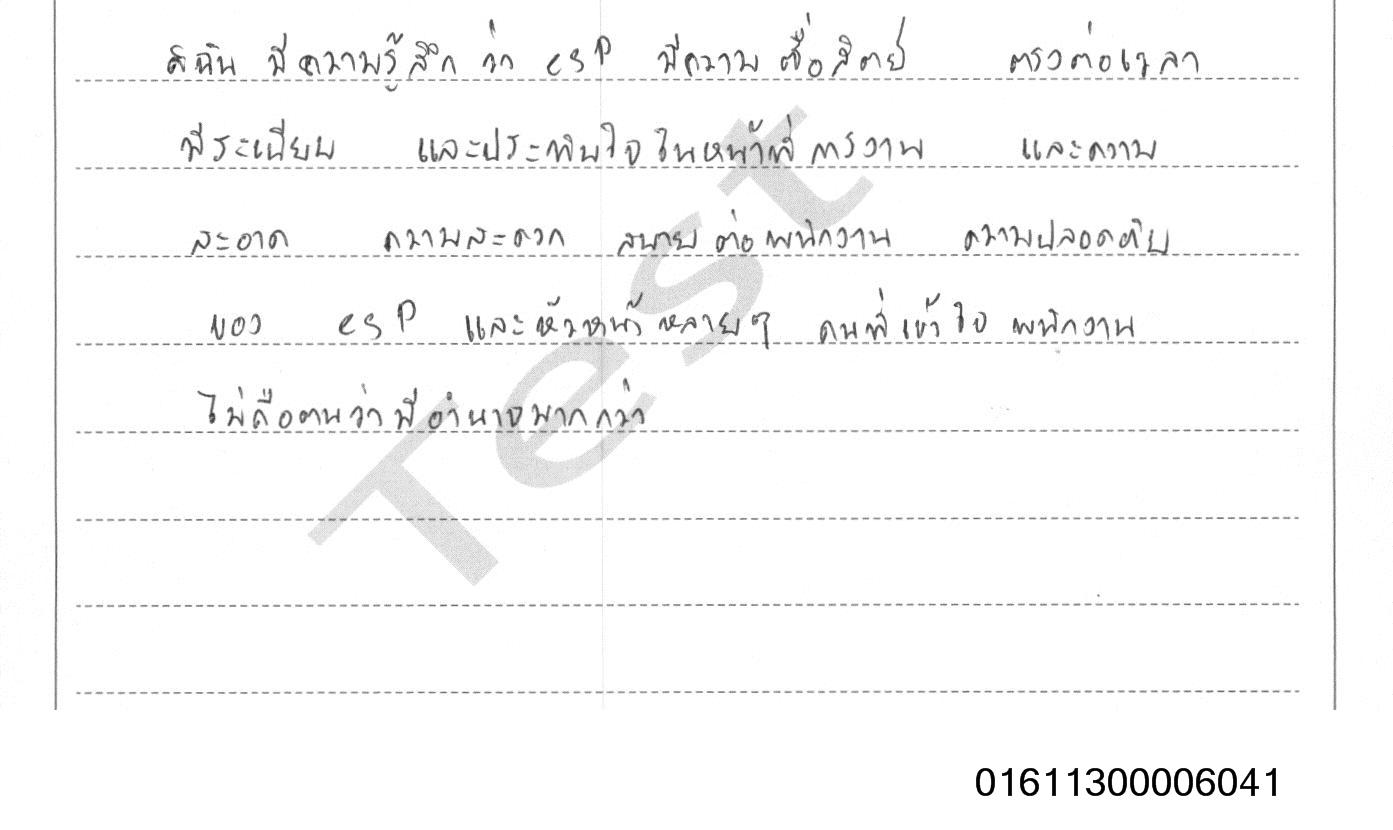 ดิฉัน มีความรู้สึก ว่า esP มีความ ซื่อสัตย์ ตรงต่อเวลา
มีระเบียบ และประทับใจ ในหน้าที่ การงาน และความ
สะอาด ความสะดวก สบาย ต่อ พนักงาน ความปลอดภัย
ของ esP และหัวหน้า หลายๆ คนที่ เข้าใจ พนักงาน
ไม่ถือตนว่า มีอำนาจมากกว่า
Test
01611300006041